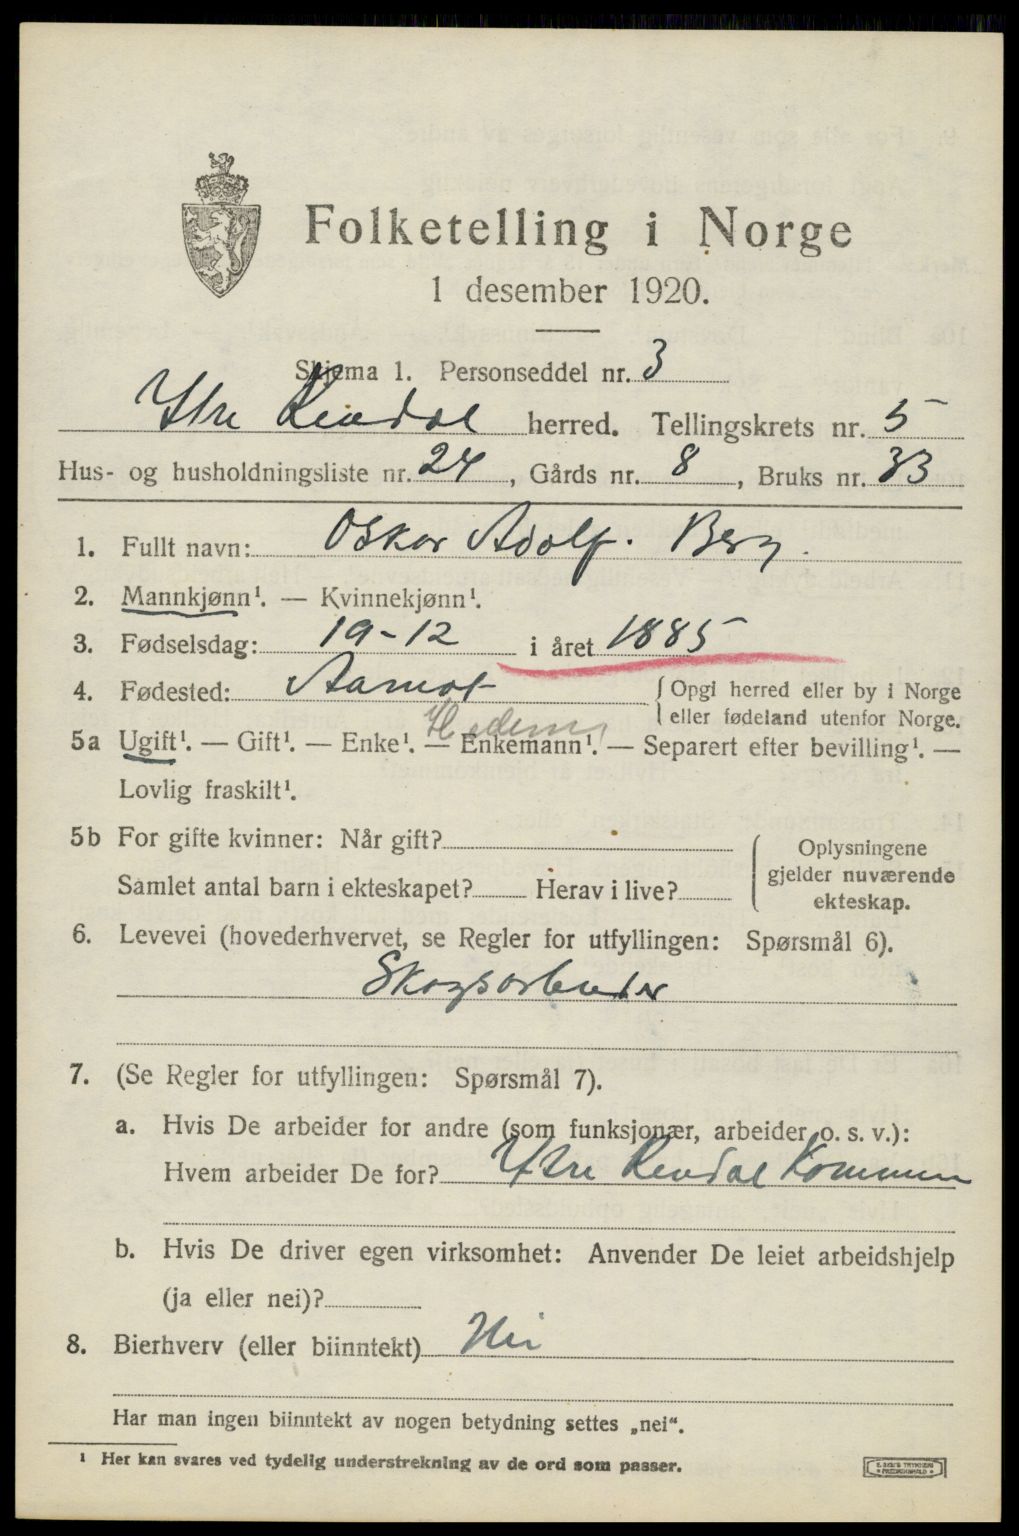 Folketelling i Norge
1 desember 1920.
Skjema 1. Personseddel nr. 3
Ytre Rendal herred. Tellingskrets nr. 5
Hus- og husholdningsliste nr. 24, Gårds nr. 8, Bruks nr. 33
1. Fullt navn: Oskar Adolf. Berg.
2. Mannkjønn¹. — Kvinnekjønn¹.
3. Fødselsdag: 19-12 i året 1885
4. Fødested: Aamot { Opgi herred eller by i Norge
eller fødeland utenfor Norge.
Hedem
5a Ugift¹. — Gift¹. — Enke¹. — Enkemann¹. — Separert efter bevilling¹. —
Lovlig fraskilt¹.
5b For gifte kvinner: Når gift?
Samlet antal barn i ekteskapet? Herav i live?
Oplysningene
gjelder nuværende
ekteskap.
6. Levevei (hovederhvervet, se Regler for utfyllingen: Spørsmål 6).
Skogsarbeider
7. (Se Regler for utfyllingen: Spørsmål 7).
a. Hvis De arbeider for andre (som funksjonær, arbeider o. s. v.):
Hvem arbeider De for? Ytre Rendal Kommun
b. Hvis De driver egen virksomhet: Anvender De leiet arbeidshjelp
(ja eller nei)?
8. Bierhverv (eller biinntekt) Nei
Har man ingen biinntekt av nogen betydning settes „nei“.
¹ Her kan svares ved tydelig understrekning av de ord som passer.